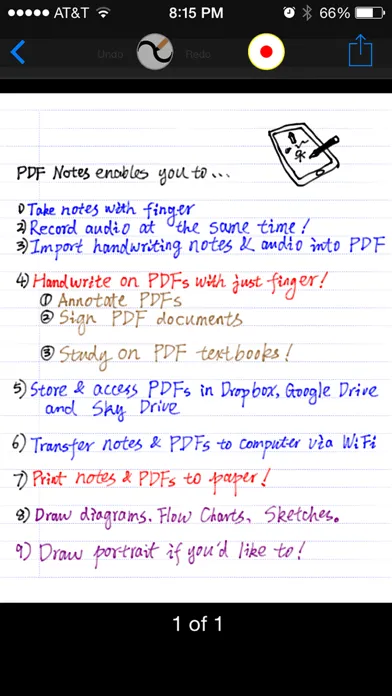 AT&T 8:15 PM 66%
Undo Redo
PDF Notes enables you to...
1) Take notes with finger
2) Record audio at the same time!
3) Import handwriting notes & audio into PDF
4) Handwrite on PDFs with just finger!
① Annotate PDFs
② Sign PDF documents
③ Study on PDF textbooks!
5) Store & access PDFs in Dropbox, Google Drive
and Sky Drive
6) Transfer notes & PDFs to computer via WiFi
7) Print notes & PDFs to paper!
8) Draw diagrams. Flow Charts, Sketches.
9) Draw portrait if you'd like to!
1 of 1